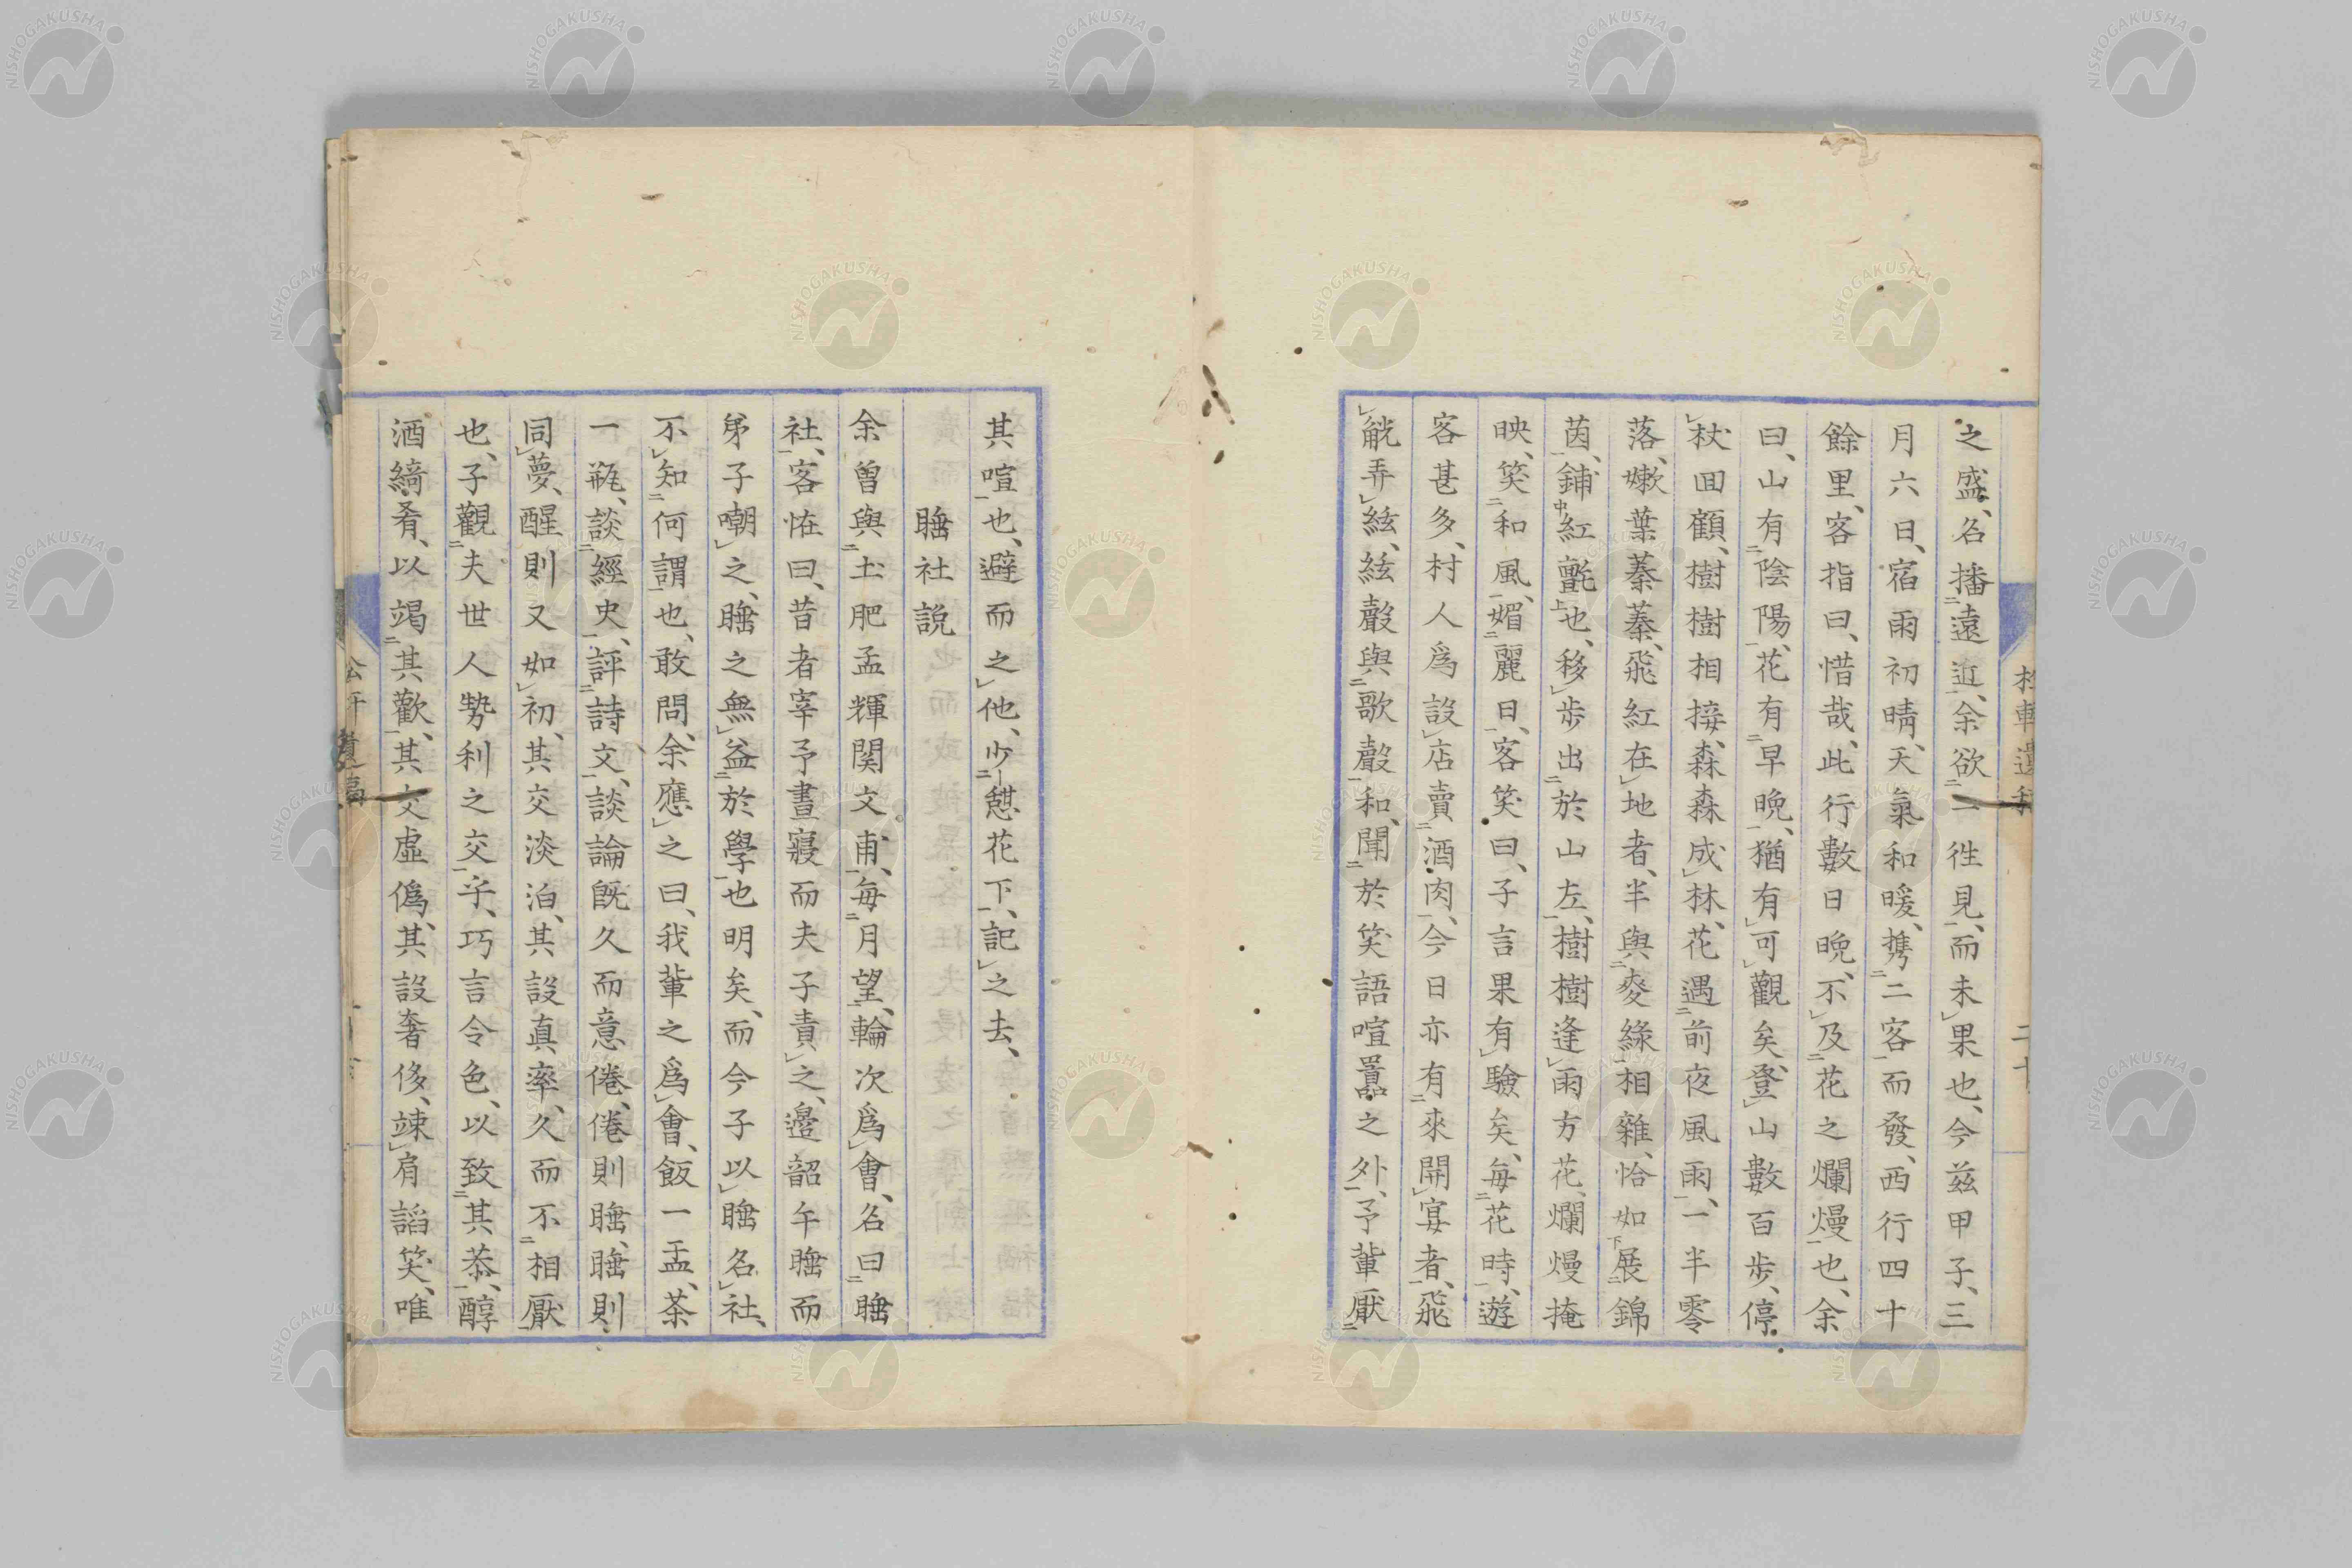 之盛、名播遠近、余欲一徃見、而未果也、今茲甲子、三
月六日、宿雨初晴、天氣和暖、携二客而發、西行四十
餘里、客指曰、惜哉、此行數日晩、不及花之爛熳也、余
曰、山有陰陽、花有早晩、猶有可觀矣、登山數百歩、停
杖回顧、樹樹相接、森森成林、花遇前夜風雨、一半零
落、嫩葉蓁蓁、飛紅在地者、半與麥綠相雜、恰如展錦
茵、鋪紅氈也、移歩出於山左、樹樹逢雨方花、爛熳掩
映、笑和風、媚麗日、客笑曰、子言果有驗矣、每花時、遊
客甚多、村人爲設店賣酒肉、今日亦有來開宴者、飛
觥弄絃、絃聲與歌聲和、聞於笑語喧囂之外、予輩厭
其喧也、避而之他、少憇花下、記之去、
睡社説
余曾與土肥孟輝関文甫、每月望、輪次爲會、名曰睡
社、客恠曰、昔者宰予晝寢而夫子責之、邉韶午睡而
弟子嘲之、睡之無益於學也明矣、而今子以睡名社、
不知何謂也、敢問、余應之曰、我輩之爲會、飯一盂、茶
一瓶、談經史、評詩文、談論既久而意倦、倦則睡、睡則
同夢、醒則又如初、其交淡泊、其設真率、久而不相厭
也、子觀夫世人勢利之交乎、巧言令色、以致其恭、醇
酒綺肴、以竭其歡、其交虛僞、其設奢侈、竦肩謟笑、唯
NISHOGAKUSHA